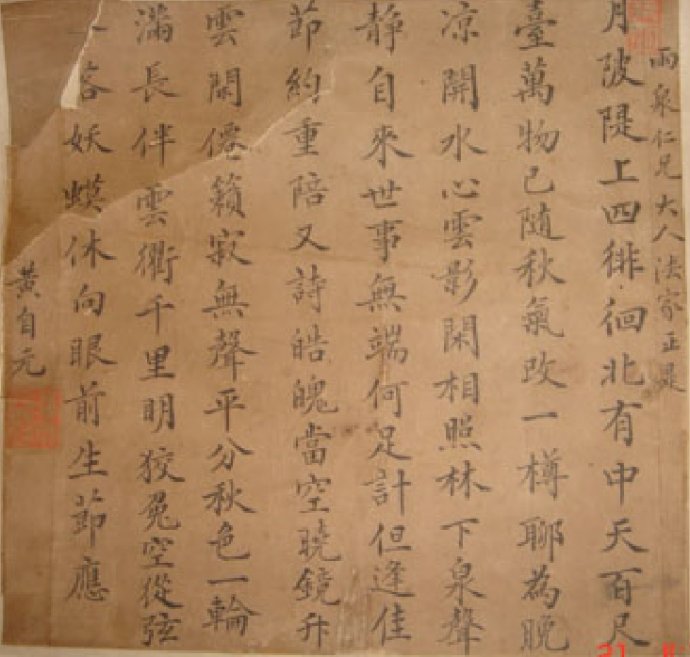 雨泉仁兄大人法家正是
月陂隄上四徘徊北有中天百尺
臺萬物已隨秋氣改一樽聊為晚
凉開水心雲影閑相照林下泉聲
靜自來世事無端何足計但逢佳
莭約重陪又詩皓魄當空曉鏡升
雲閑僊籟寂無聲平分秋色一輪
滿長伴雲衢千里明狡兔空從弦
落妖蟆休向眼前生莭應
黃自元
21